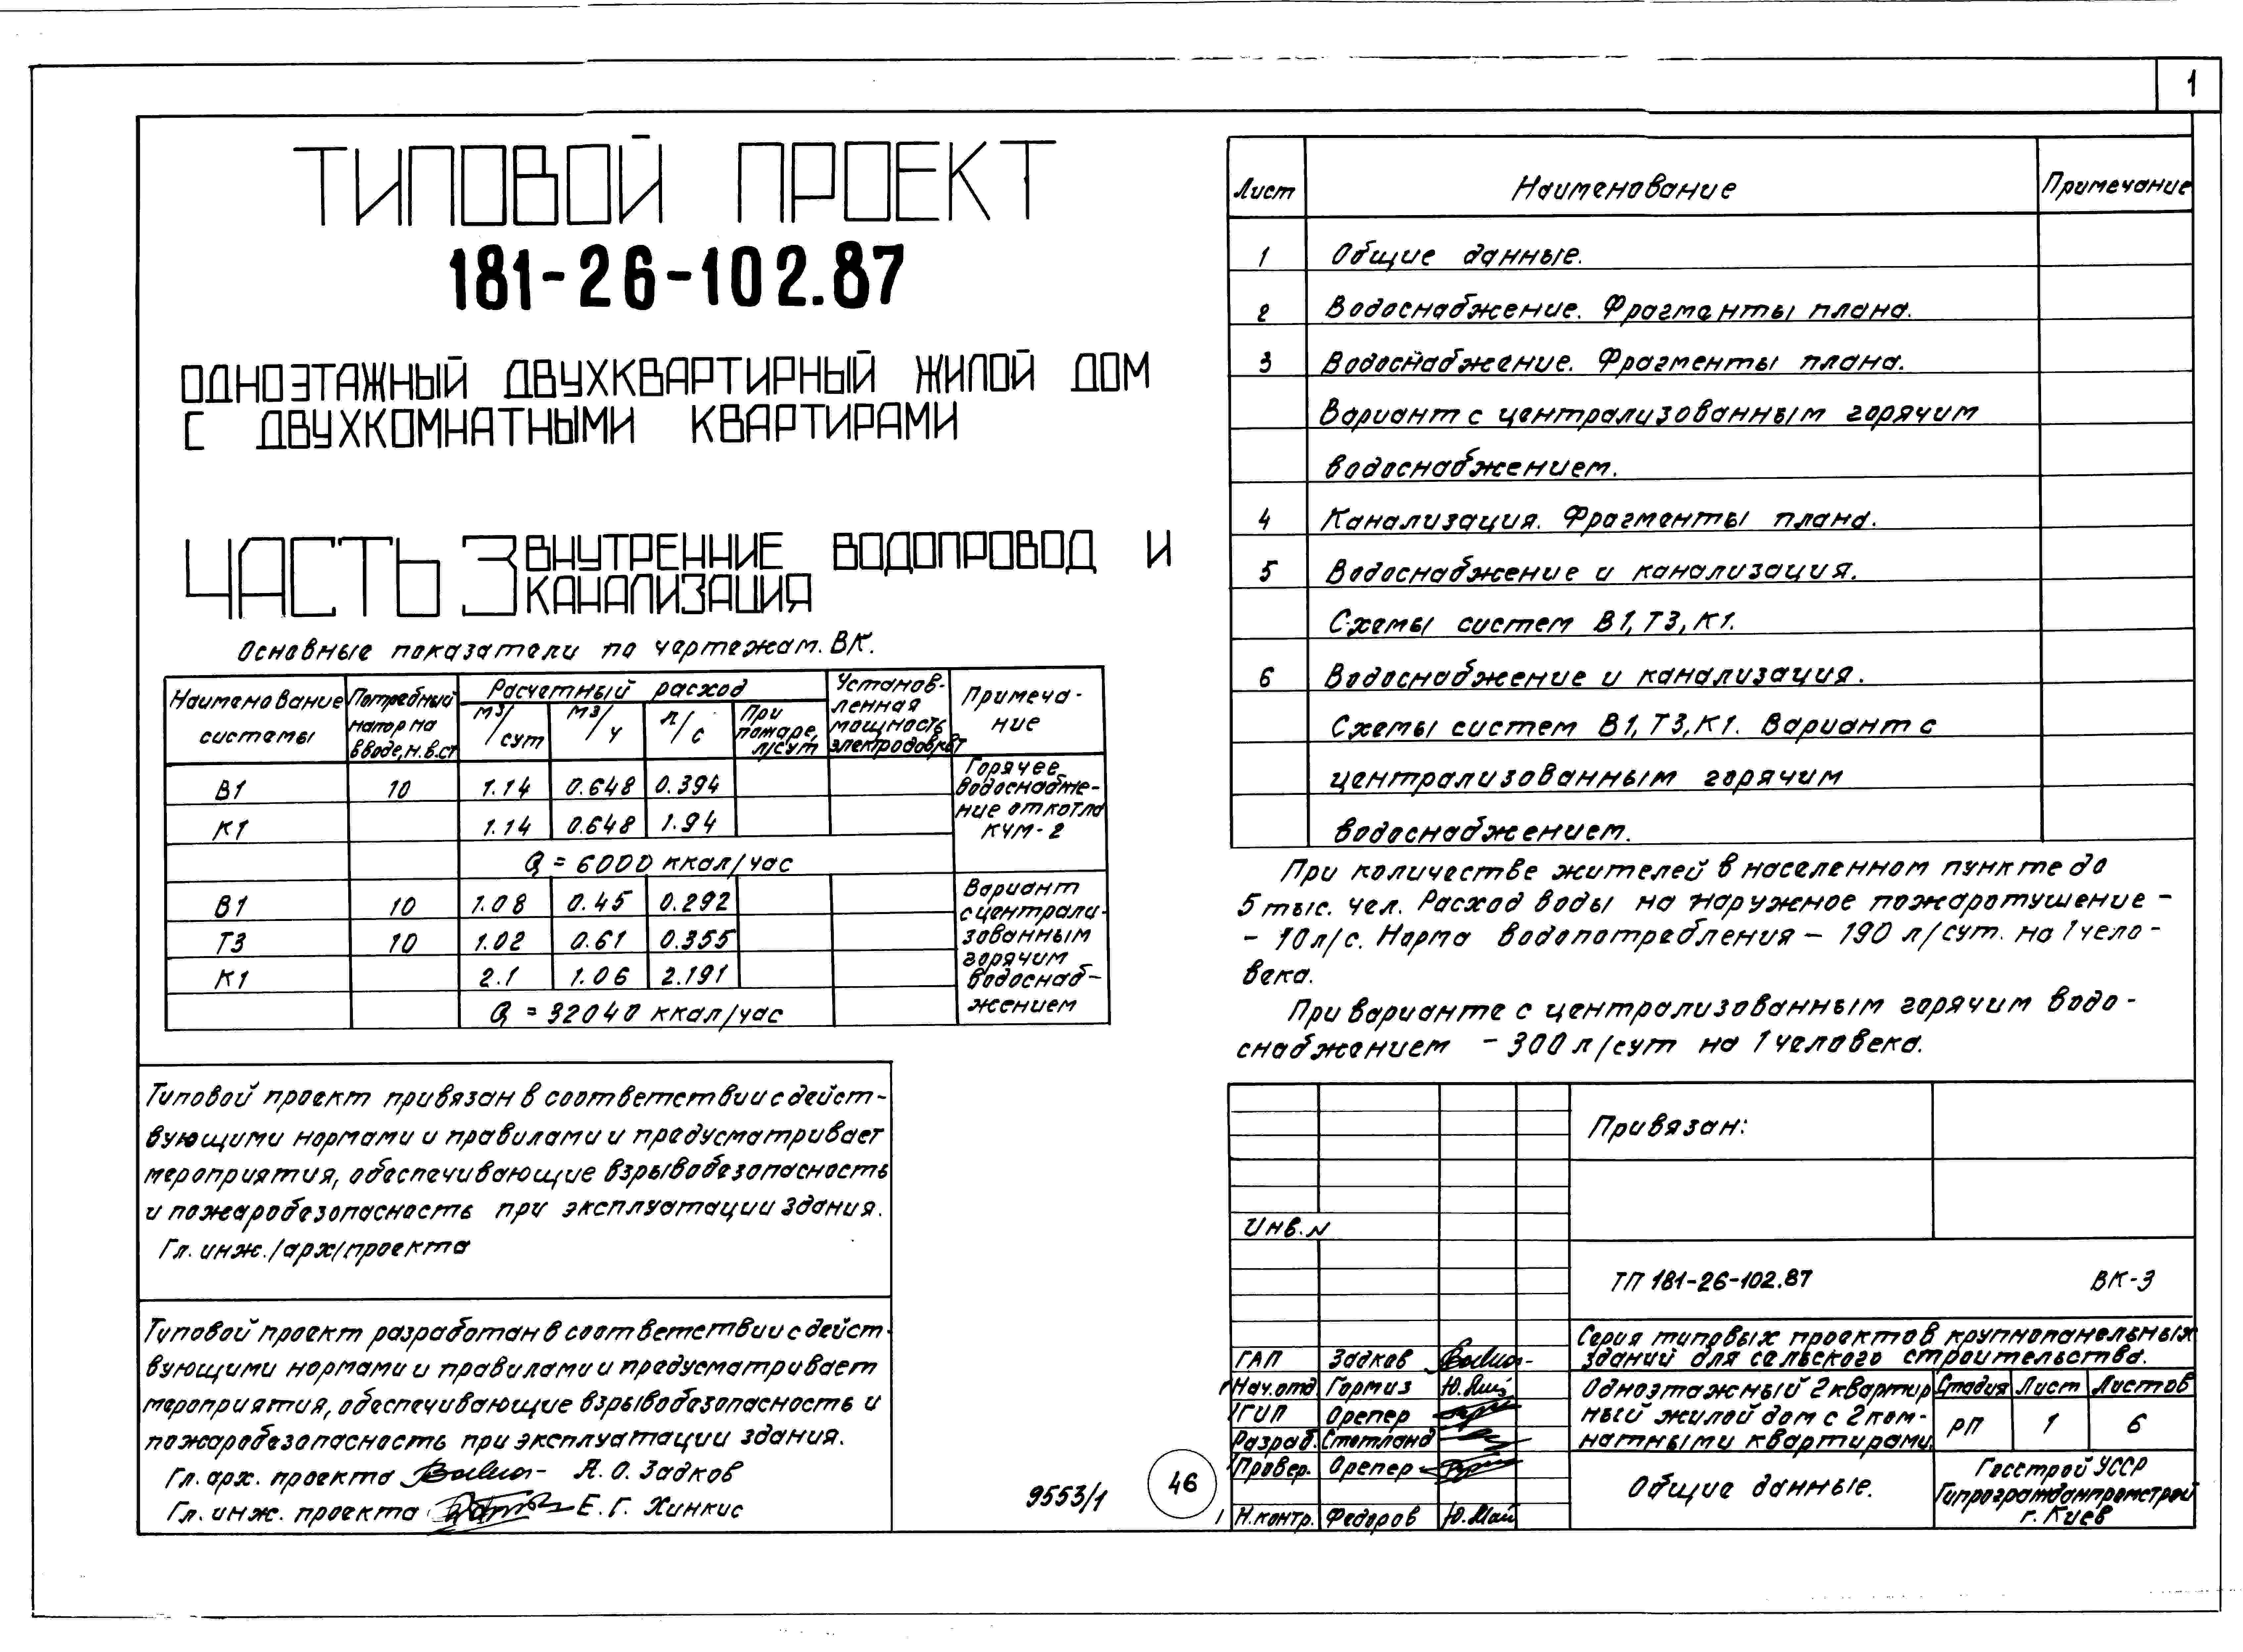 1
ТИПОВОЙ ПРОЕКТ
181-26-102.87
ОДНОЭТАЖНЫЙ ДВУХКВАРТИРНЫЙ ЖИЛОЙ ДОМ
С ДВУХКОМНАТНЫМИ КВАРТИРАМИ
ЧАСТЬ 3 ВНУТРЕННИЕ ВОДОПРОВОД И
КАНАЛИЗАЦИЯ
Основные показатели по чертежам. ВК.
Наименование системы | Потребный напор на вводе, м.в.ст | Расчетный расход | Установ-ленная мощность электродв, квт | Примеча-ние
м3/сут | м3/ч | л/с | При пожаре, л/сут
В1 | 10 | 1.14 | 0.648 | 0.394 | Горячее водоснабже-ние от котла КЧМ-2
К1 | 1.14 | 0.648 | 1.94
Q = 6000 ккал/час
В1 | 10 | 1.08 | 0.45 | 0.292 | Вариант с централи-зованным горячим водоснаб-жением
Т3 | 10 | 1.02 | 0.61 | 0.355
К1 | 2.1 | 1.06 | 2.191
Q = 32040 ккал/час
Типовой проект привязан в соответствии с дейст-
вующими нормами и правилами и предусматривает
мероприятия, обеспечивающие взрывобезопасность
и пожаробезопасность при эксплуатации здания.
Гл. инж./арх/проекта
Типовой проект разработан в соответствии с дейст-
вующими нормами и правилами и предусматривает
мероприятия, обеспечивающие взрывобезопасность и
пожаробезопасность при эксплуатации здания.
Гл. арх. проекта А. О. Задков
Гл. инж. проекта Е. Г. Хинкис
9553/1
46
Лист | Наименование | Примечание
1 | Общие данные.
2 | Водоснабжение. Фрагменты плана.
3 | Водоснабжение. Фрагменты плана.
Вариант с централизованным горячим
водоснабжением.
4 | Канализация. Фрагменты плана.
5 | Водоснабжение и канализация.
Схемы систем В1, Т3, К1.
6 | Водоснабжение и канализация.
Схемы систем В1, Т3, К1. Вариант с
централизованным горячим
водоснабжением.
При количестве жителей в населенном пункте до
5 тыс. чел. Расход воды на наружное пожаротушение -
- 10 л/с. Норма водопотребления - 190 л/сут. на 1 чело-
века.
При варианте с централизованным горячим водо-
снабжением - 300 л/сут на 1 человека.
Привязан:
Инв. N
ТП 181-26-102.87 ВК-3
Серия типовых проектов крупнопанельных
зданий для сельского строительства.
ГАП Задков
Нач.отд Гормиз
ГИП Орепер
Разраб. Стотланд
Провер. Орепер
Н.контр. Федоров
Одноэтажный 2 квартир
ный жилой дом с 2 ком-
натными квартирами
Стадия | Лист | Листов
РП | 1 | 6
Общие данные.
Госстрой УССР
Гипрогражданпромстрой
г. Киев